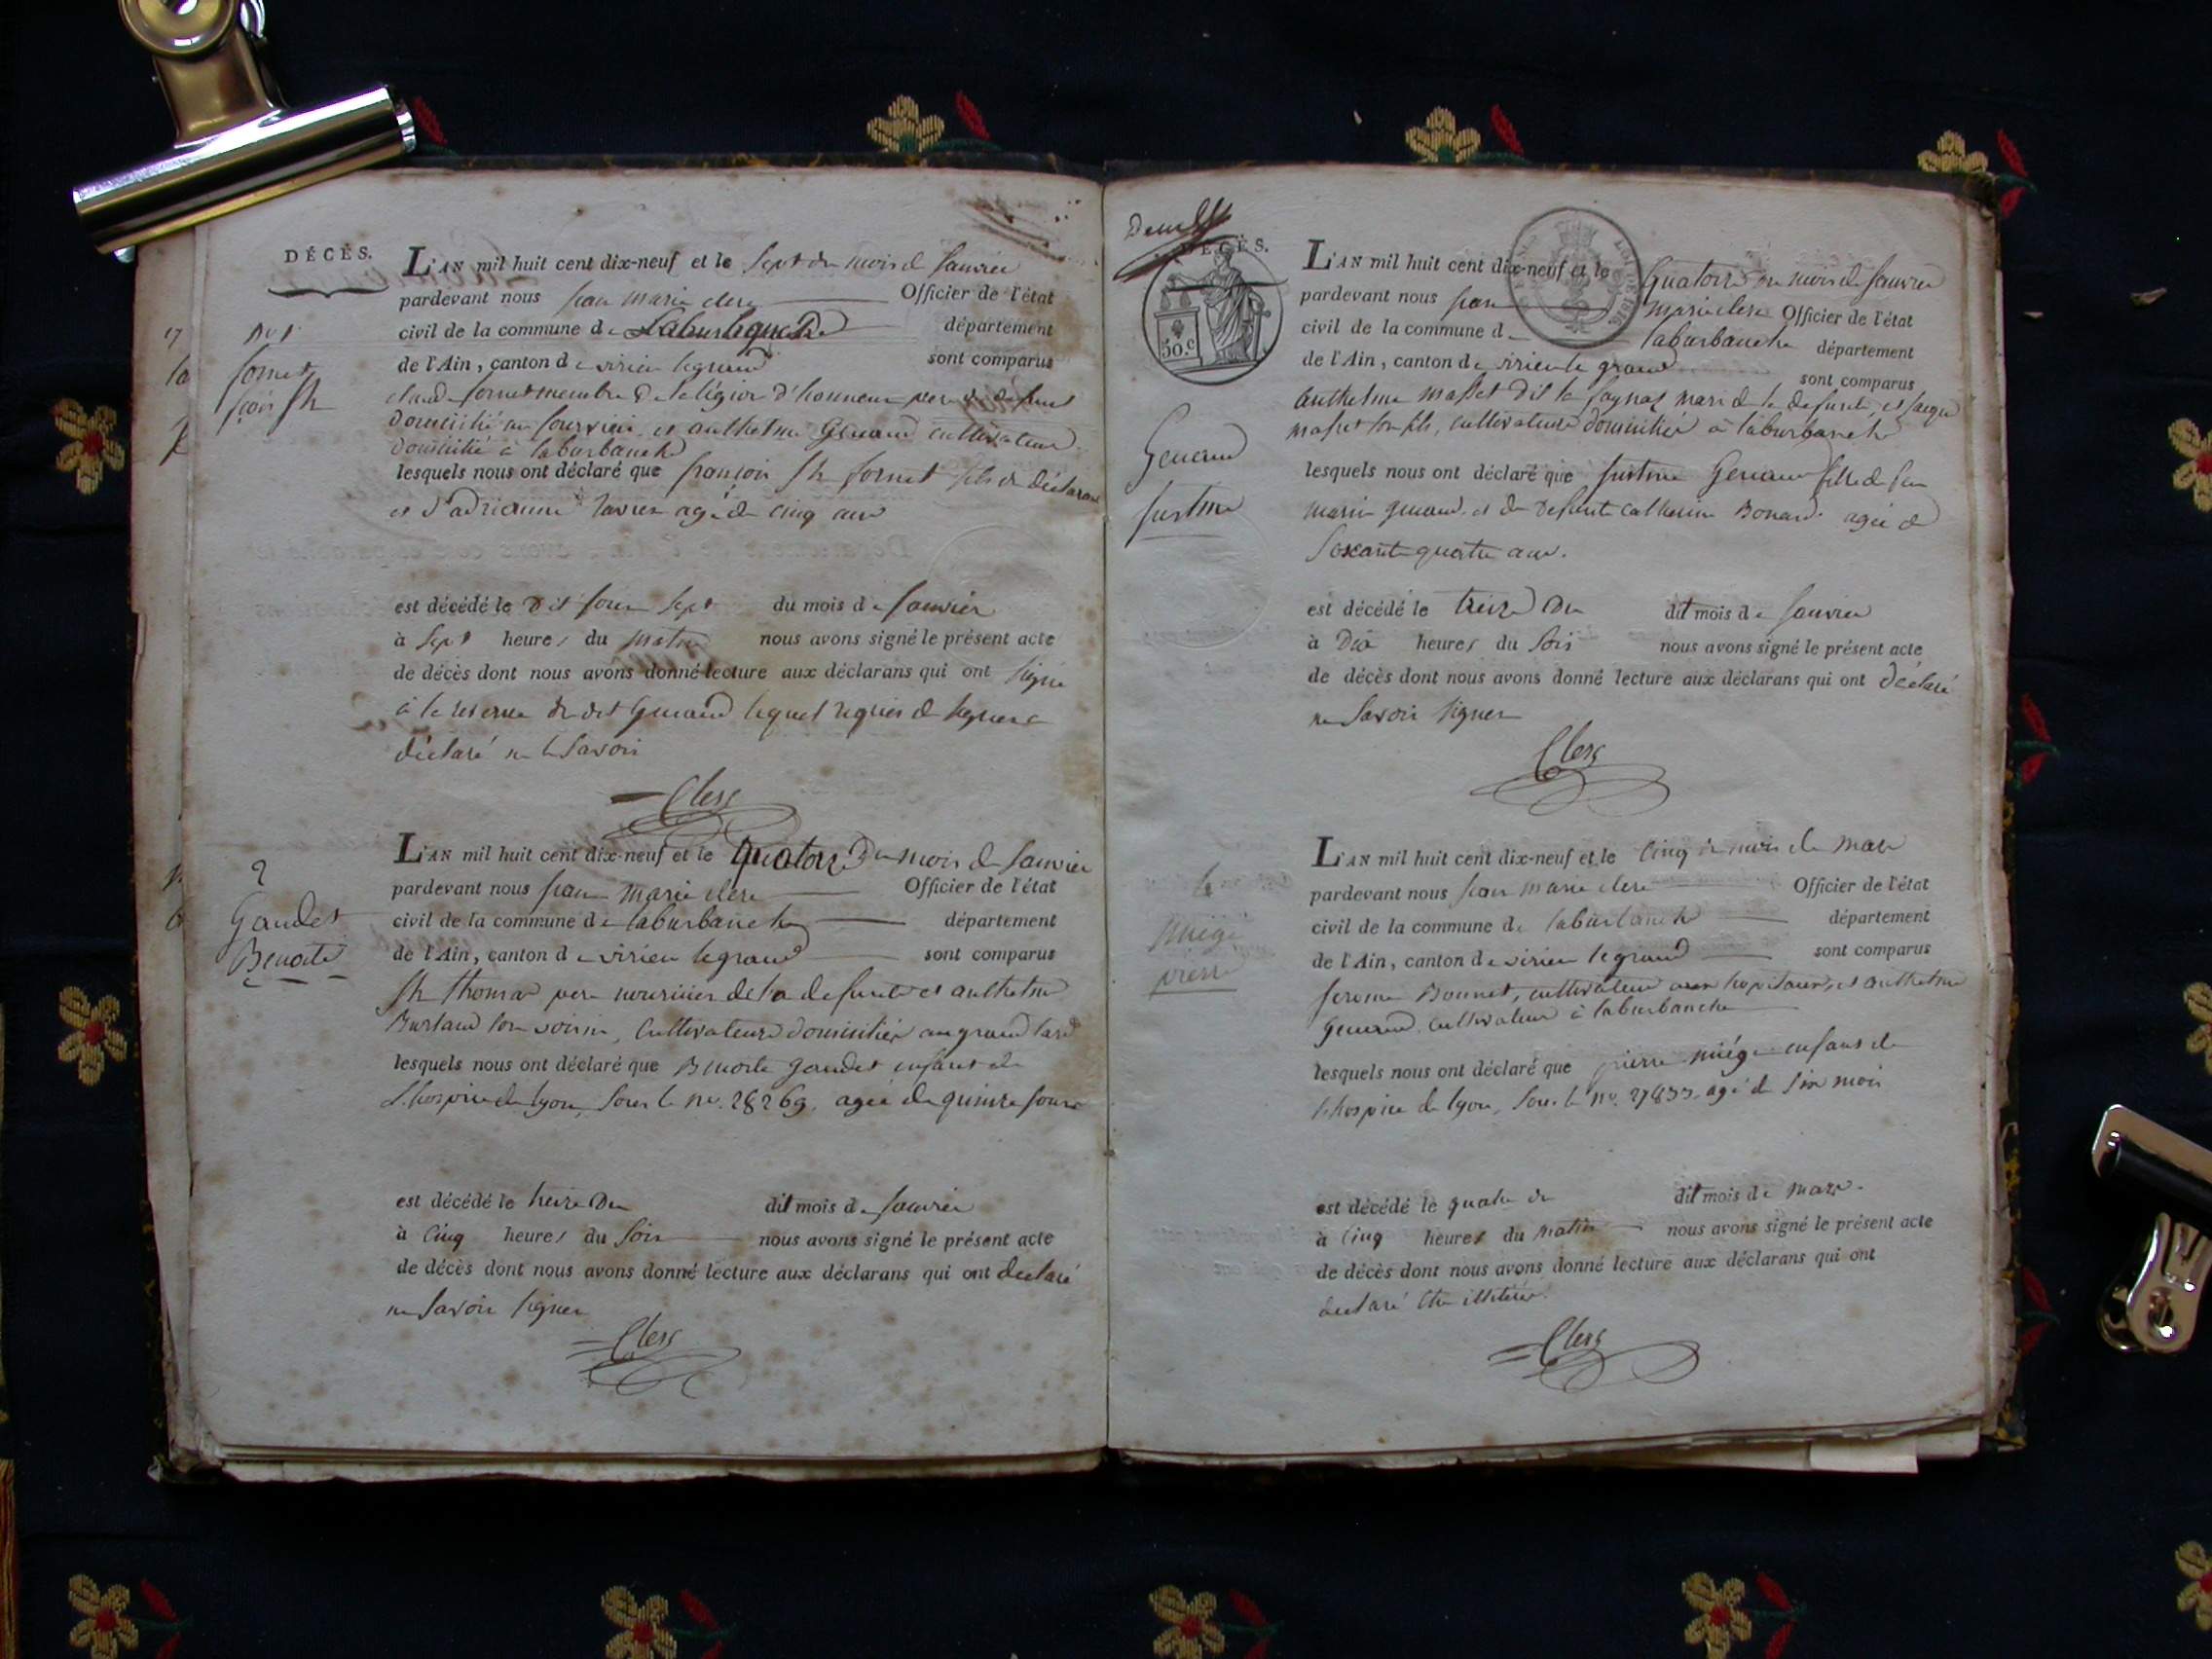 DÉCÈS.
L'AN mil huit cent dix-neuf et le sept du mois de janvier
pardevant nous jean marie clerc Officier de l'état
civil de la commune de Laburbanche département
de l'Ain, canton de virieu le grand sont comparus
claude fornet membre de la légion d'honneur père du defunt
Domicilié au et anthelme Genand cultivateur
domicilié à laburbanche
lesquels nous ont déclaré que françois fornet fils du déclarant
et d'adrianne agé de cinq ans
est décédé le dit jour sept du mois de janvier
à sept heures du matin nous avons signé le présent acte
de décès dont nous avons donné lecture aux déclarans qui ont signé
à la reserve du dit Genand lequel requis de signer a
déclaré ne le savoir
Clerc
nº 1
fornet
2
Gaudet
Benoite
L'AN mil huit cent dix-neuf et le quatorze du mois de janvier
pardevant nous jean marie clerc Officier de l'état
civil de la commune de laburbanche département
de l'Ain, canton de virieu le grand sont comparus
thomas père nouricier de la defunte et anthelme
Burland son voisin, cultivateurs domiciliés au grand
lesquels nous ont déclaré que Benoite gaudet enfant de
l'hospice de lyon, sous le nº. 28269. agée de quinze jours
est décédé le treize du dit mois de janvier
à cinq heures du soir nous avons signé le présent acte
de décès dont nous avons donné lecture aux déclarans qui ont declaré
ne savoir signer
Clerc
DÉCÈS.
50.c
Genand
justine
L'AN mil huit cent dix-neuf et le quatorze du mois de janvier
pardevant nous jean marie clerc Officier de l'état
civil de la commune de laburbanche département
de l'Ain, canton de virieu le grand sont comparus
anthelme masset dit la mari de la defunte, et jacque
masset son fils, cultivateurs domiciliés à laburbanche
lesquels nous ont déclaré que justine Genand fille de feu
marin genand et de defunte catherine Bonard agée de
soixante quatre ans.
est décédé le treize du dit mois de janvier
à Dix heures du soir nous avons signé le présent acte
de décès dont nous avons donné lecture aux déclarans qui ont déclaré
ne savoir signer
Clerc
4
miége
pierre
L'AN mil huit cent dix-neuf et le cinq du mois de mars
pardevant nous jean marie clerc Officier de l'état
civil de la commune de laburbanche département
de l'Ain, canton de virieu le grand sont comparus
jerome Bonnet, cultivateur aux hopitaux, et anthelme
genand cultivateur à laburbanche
lesquels nous ont déclaré que pierre miége enfant de
l'hospice de lyon, sous le nº. 27833. agé de six mois
est décédé le quatre du dit mois de mars.
à cinq heures du matin nous avons signé le présent acte
de décès dont nous avons donné lecture aux déclarans qui ont
declaré être illitérés.
Clerc